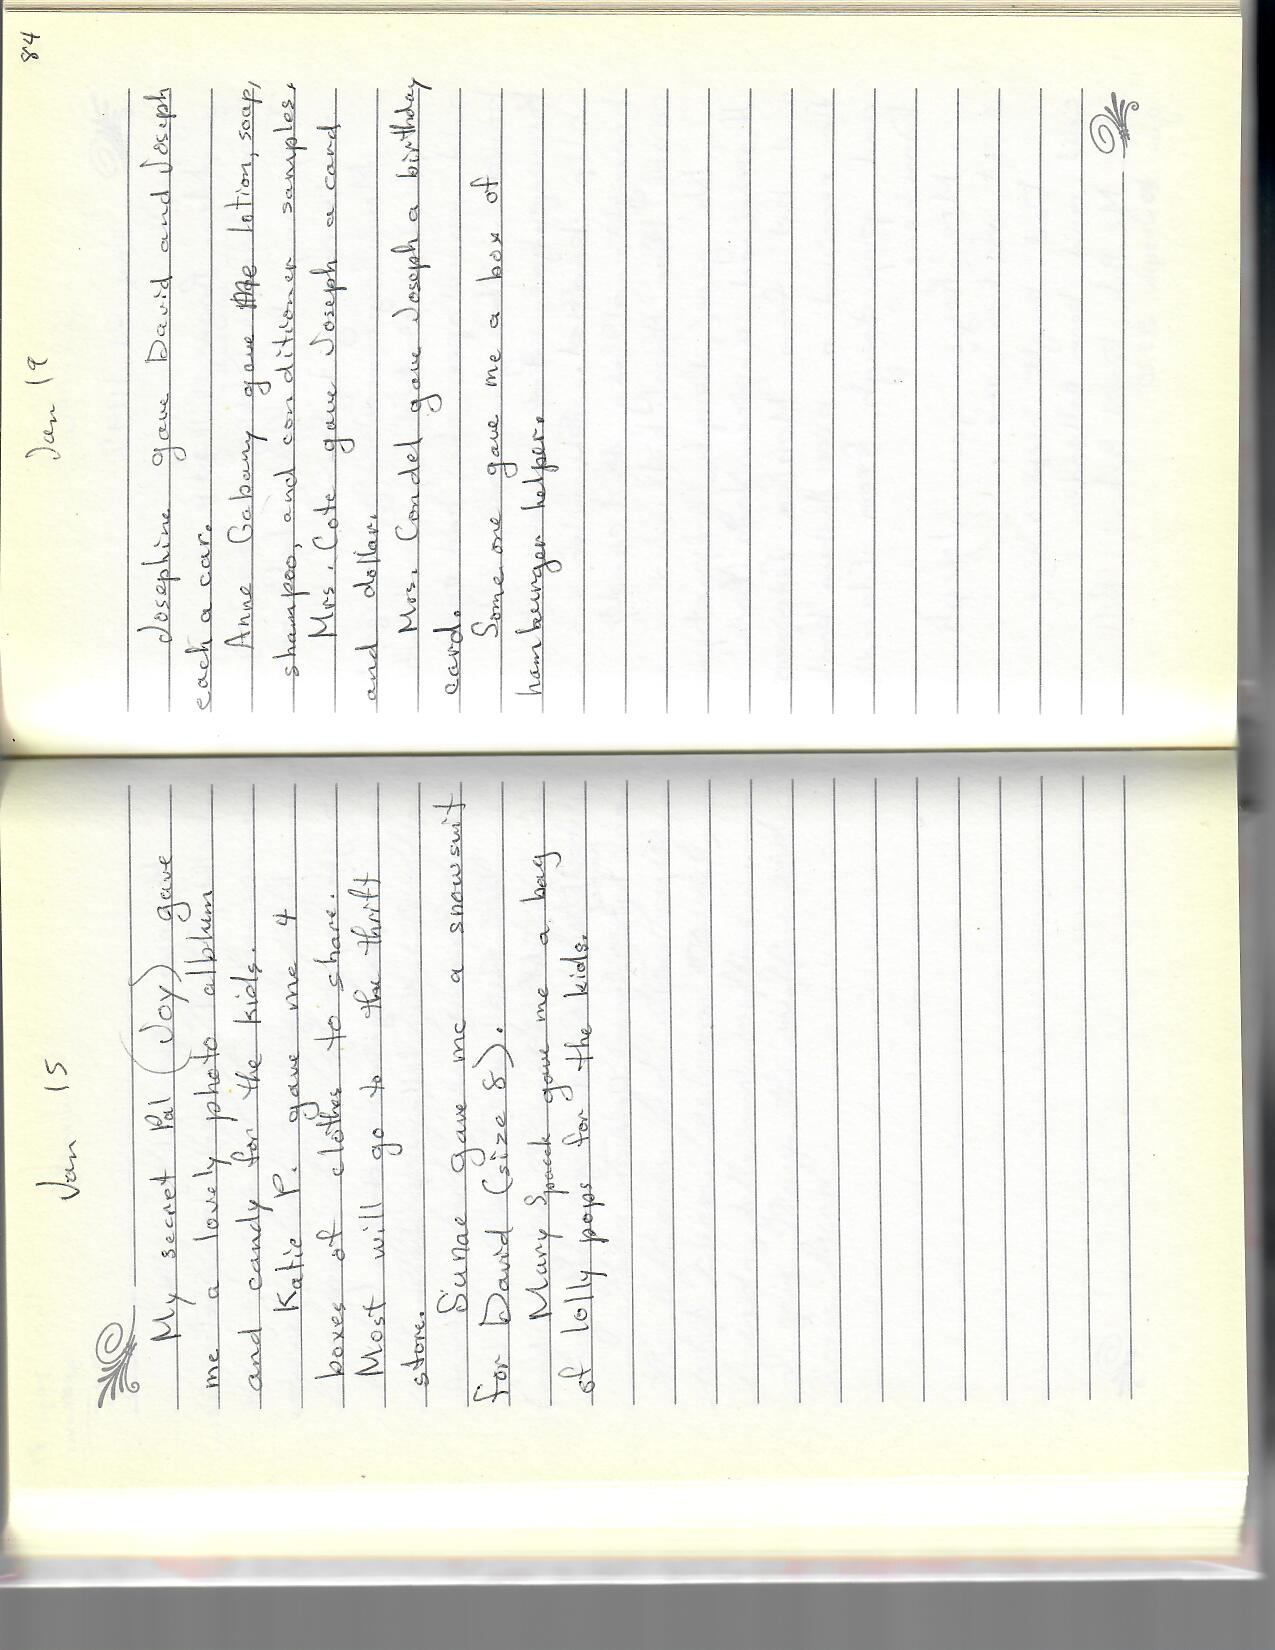 Jan 15
My secret Pal (Joy) gave
me a lovely photo alblum
and candy for the kids.
Katie P. gave me 4
boxes of clothes to share.
Most will go to the thrift
store.
Sunae gave me a snowsuit
for David (size 8).
Mary Spack gave me a bag
of lolly pops for the kids.
84
Jan 19
Josephine gave David and Joseph
each a car.
Anne Gabany gave me lotion, soap,
shampoo, and conditioner samples.
Mrs. Cote gave Joseph a card
and dollar.
Mrs. Condel gave Joseph a birthday
card.
Some one gave me a box of
hamburger helper.